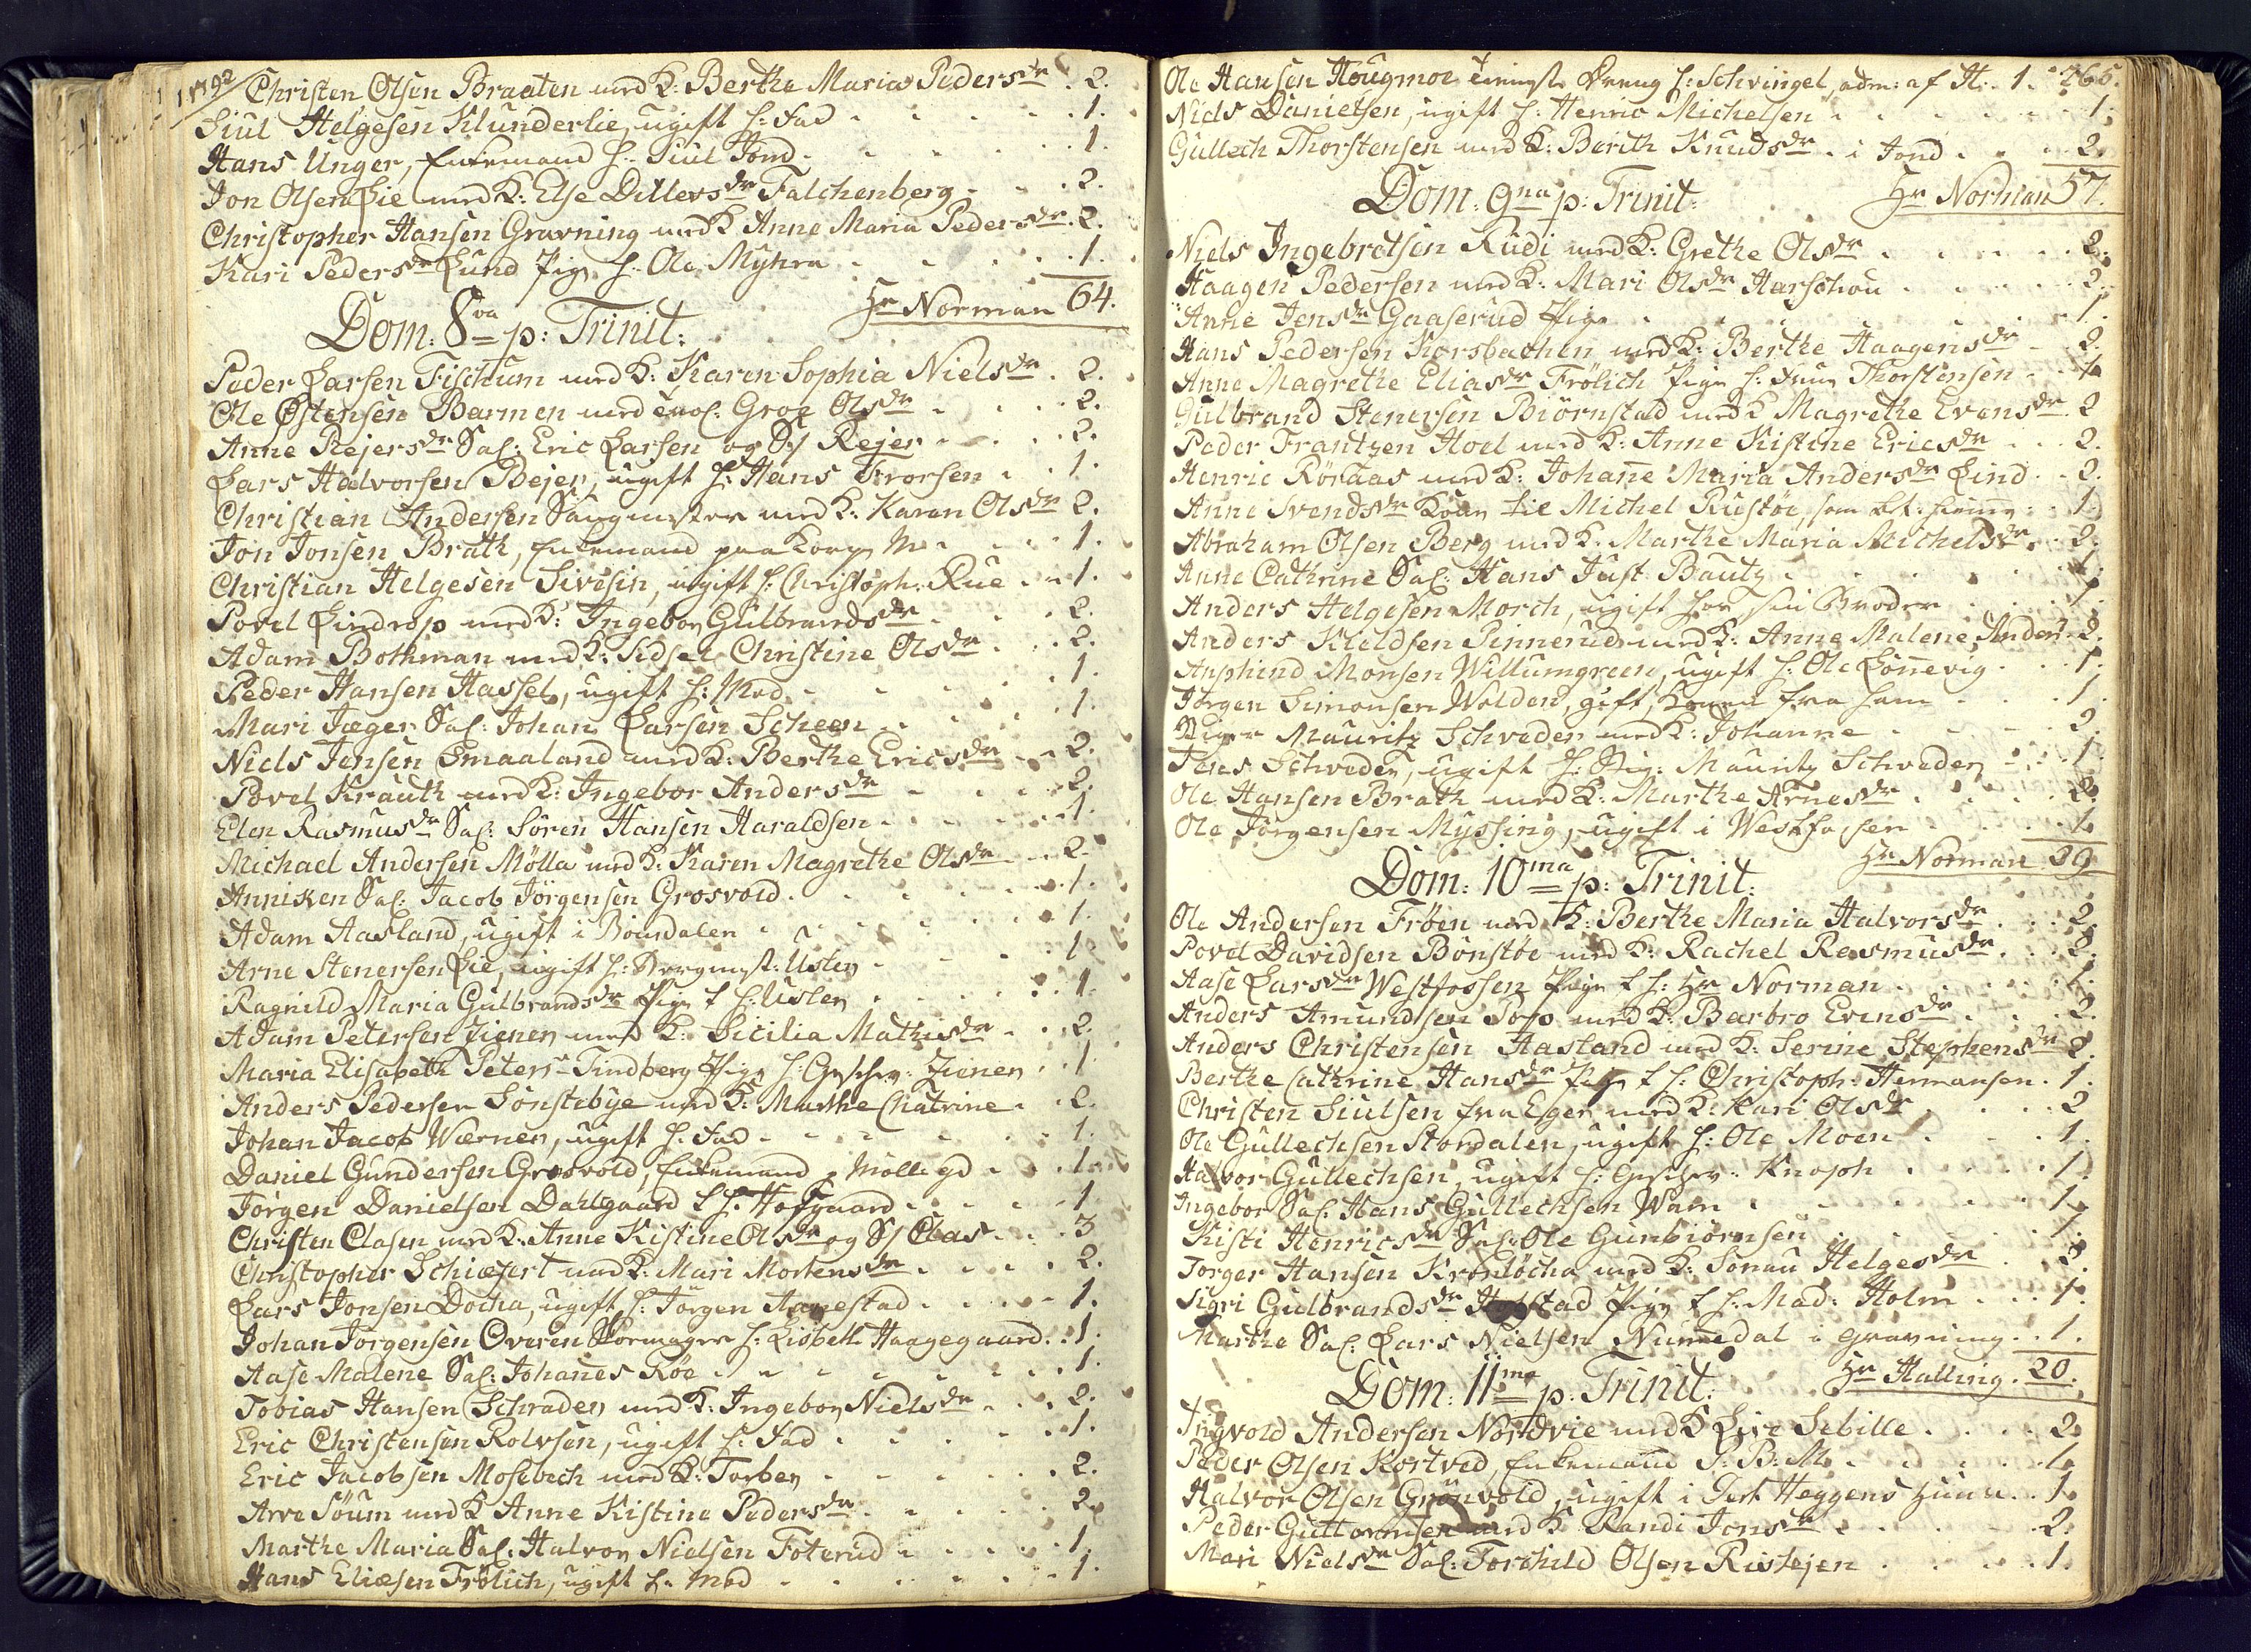 1792
Christen Olsen Braaten med K: Berthe Maria Pedersdr. 2.
Siul Helgesen Klunderlie, ugift h: Fad . 1.
Hans Unger, Enkemand h: Siul Jond . 1.
Jon Olsen Lie med K: Else Ditlevsdr Falchenberg . 2.
Christopher Hansen Gravning med K Anne Maria Pedersdr. 2.
Kari Pedersdr Lund Pige h: Ole Myhra . 1.
Hr Norman 64.
Dom: 8va p: Trinit:
Peder Larsen Fischum med K: Karen Sophia Nielsdr. 2.
Ole Østensen Barmen med Groe Olsdr . 2.
Anne Rejersdr Sal: Eric Larsen og S/ Rejer . 2.
Lars Halvorsen Bejer, ugift h: Hans Trorsen . 1.
Christian Andersen Sangmester med K: Karen Olsdr 2.
Jon Jonsen Brath, Enkemand paa Kongs . 1.
Christian Helgesen Sivesin, ugift h: Christoph: Rue . 1.
Povel Lindrop med K: Ingebor Gulbrandsdr . 2.
Adam Bothman med K: Sidsel Christine Olsdr . 2.
Peder Hansen Hassel, ugift h: Mod . 1.
Mari Jæger Sal: Johan Larsen Scheen . 1.
Niels Jensen Smaaland med K: Berthe Ericsdr . 2.
Povel Krauth med K: Ingebor Andersdr . 2.
Elen Rasmusdr Sal: Sören Hansen Haraldsen . 1.
Michael Andersen Mölla med K: Karen Magrethe Olsdr . 2.
Anniken Sal: Jacob Jörgensen Grosvold . 1.
Adam Aasland, ugift i . 1.
Arne Stenersen Lie, ugift h: Bergmest: Usler . 1.
Ragnild Maria Gulbrandsdr Pige t h: Usler . 1.
Adam Petersen Zienen med K: Sicilia Mathisdr . 2.
Maria Elisabeth Petersdr Tindberg Pige h: Geschw: Zienen . 1.
Anders Pedersen Sönstebye med K: Marthe Chatrine . 2.
Johan Jacob Wærner, ugift h: Fad . 1.
Daniel Gundersen Grosvold, Enkemand . 1.
Jörgen Danielsen Dahlgaard t h: Hofgaard . 1.
Christen Clasen med K: Anne Kistine Olsdr og S/ Clas . 3
Christopher Schiæfert med K: Mari Mortensdr . 2.
Lars Jonsen Docka, ugift h: Jörgen Aarestad . 1.
Johan Jörgensen Overen Skomager h: Lisbeth Haagegaard . 1.
Aase Malene Sal: Johanes Röe . 1.
Tobias Hansen Schrader med K: Ingebor Nielsdr . 2.
Eric Christensen Rolvsen, ugift h: Fad . 1.
Eric Jacobsen Mosebech med K: Torber . 2.
Arve Söum med K Anne Kistine Pedersdr . 2.
Marthe Maria Sal: Halvor Nielsen Foterud . 1.
Hans Eliæsen Frölich, ugift h: Mod . 1.
Ole Hansen Hougmoe Dreng h: Schvingel, adm: af H. 1. 265.
Niels Danielsen, ugift h: Henric Michelsen . 1.
Gullech Thorstensen med K: Berith Knudsdr . i Jond . 2.
Dom: 9na p: Trinit: Hr Norman 57.
Niels Ingebretsen Rudi med K: Grethe Olsdr . 2.
Haagen Pedersen med K: Mari Olsdr Harschou . 2.
Anne Jensdr Gaaserud Pige . 1.
Hans Pedersen Korsbachen med K: Berthe Haagensdr . 2.
Anne Magrethe Eliasdr Frölich Pige h: Thorstensen . 1
Gulbrand Stenersen Biörnstad med K Magrethe Evensdr. 2
Peder Frantzen Hoel med K: Anne Kistine Ericsdr . 2.
Henric Röraas med K: Johane Maria Andersdr Lind . 2.
Anne Svendsdr Kone til Michel Rustöe, som . 1.
Abraham Olsen Berg med K: Marthe Maria Michelsdr. 2.
Anne Cathrine Sal: Hans Just Bautz . 1.
Anders Helgesen Morch, ugift hos sin Broder . 1.
Anders Kieldsen Pinnerud med K: Anne Malene Anders. 2.
Anphind Monsen Willumgreen, ugift h: Ole Lönnevig . 1.
Jörgen Simonsen Wolden, gift, Konen fra ham . 1.
Mauritz Schveder med K: Johanne . 2
Jens Schveder, ugift h: Mauritz Schveder . 1.
Ole Hansen Brath med K: Marthe Arnesdr . 2.
Ole Jörgensen Myssing, ugift i Westfosen . 1.
Dom: 10ma p: Trinit: Hr Norman 39
Ole Andersen Fröen med K: Berthe Maria Halvorsdr . 2.
Povel Davidsen Bönstöe med K: Rachel Rasmusdr . 2.
Aase Larsdr Westfossen Pige t h: Hr Norman . 1.
Anders Amundsen Sorp med K: Barbro Evensdr . 2.
Anders Christensen Aasland med K: Serine Stephensdr 2.
Berthe Cathrine Hansdr Pige t h: Christoph: Hermansen . 1.
Christen Siulsen fra Eger med K: Kari Olsdr . 2
Ole Gullechsen Stordalen, ugift h: Ole Moen . 1.
Halvor Gullechsen, ugift h: Geschw: Knoph . 1.
Ingebor Sal: Hans Gullechsen Wam . 1.
Kisti Henricsdr Sal: Ole Gunbiörnsen . 1.
Torger Hansen Kronlöcha med K: Sönau Helgesdr . 2.
Sigri Gulbrandsdr Hobstad Pige t h: Mad: Holm . 1.
Marthe Sal: Lars Nielsen Numedal i Gravning . 1.
Dom: 11ma p: Trinit: Hr Halling . 20.
Ingvold Andersen Nordvie med K Live Sebille . 2.
Peder Olsen Kortved, Enkemand P: B: M. . 1.
Halvor Olsen Grönvold, ugift i Gert Heggens Huus . 1.
Peder Guttormsen med K Randi Jonsdr . 2.
Mari Nielsdr Sal: Torchild Olsen Ristejen . 1.